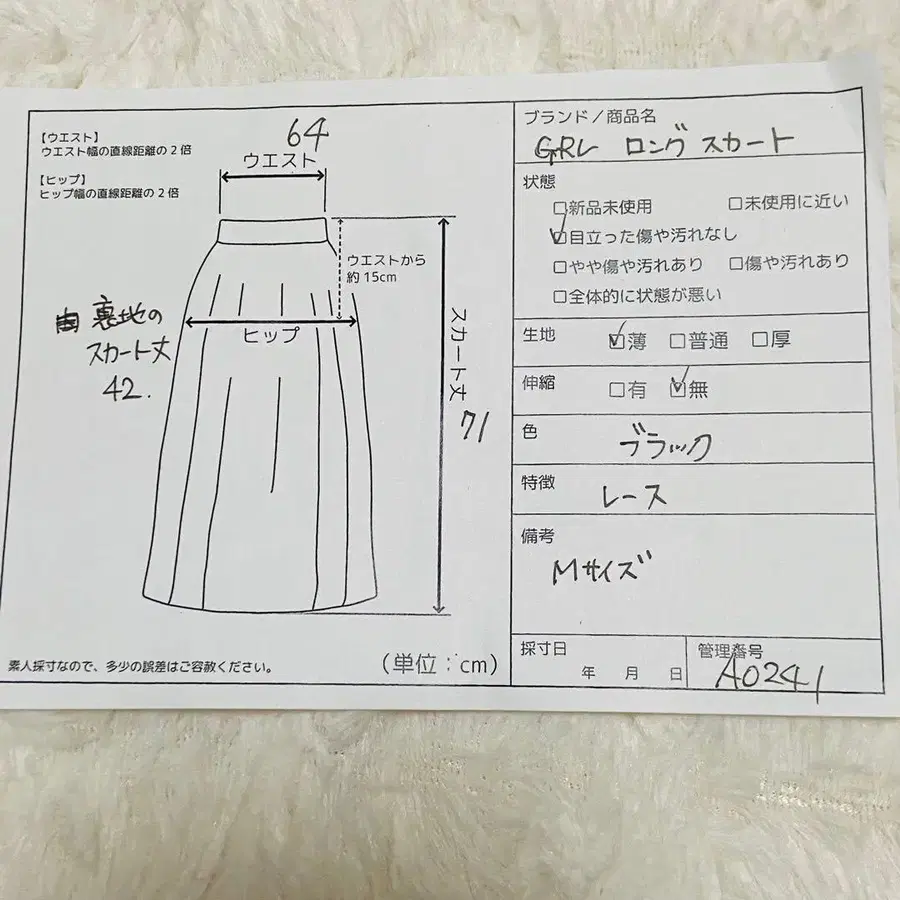 【ウエスト】
ウエスト幅の直線距離の2倍
【ヒップ】
ヒップ幅の直線距離の2倍
64
ウエスト
ウエストから
約15cm
ヒップ
裏地の
スカート丈
42.
スカート丈
71
素人採寸なので、多少の誤差はご容赦ください。
(単位:cm)
ブランド/商品名
GRL ロングスカート
状態
□新品未使用 □未使用に近い
☑目立った傷や汚れなし
□やや傷や汚れあり □傷や汚れあり
□全体的に状態が悪い
生地 ☑薄 □普通 □厚
伸縮 □有 ☑無
色 ブラック
特徴 レース
備考
Mサイズ
採寸日
年 月 日
管理番号
A0241